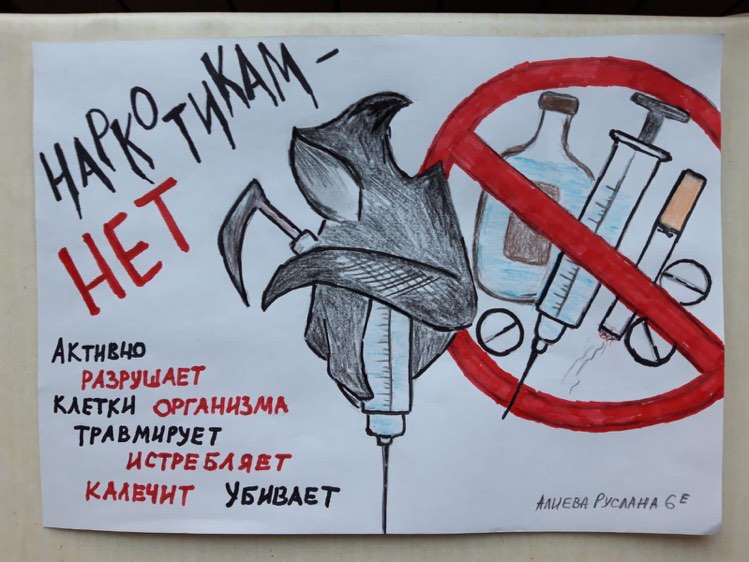 НАРКОТИКАМ –
НЕТ
АКТИВНО
РАЗРУШАЕТ
КЛЕТКИ ОРГАНИЗМА
ТРАВМИРУЕТ
ИСТРЕБЛЯЕТ
КАЛЕЧИТ УБИВАЕТ
АЛИЕВА РУСЛАНА 6Е